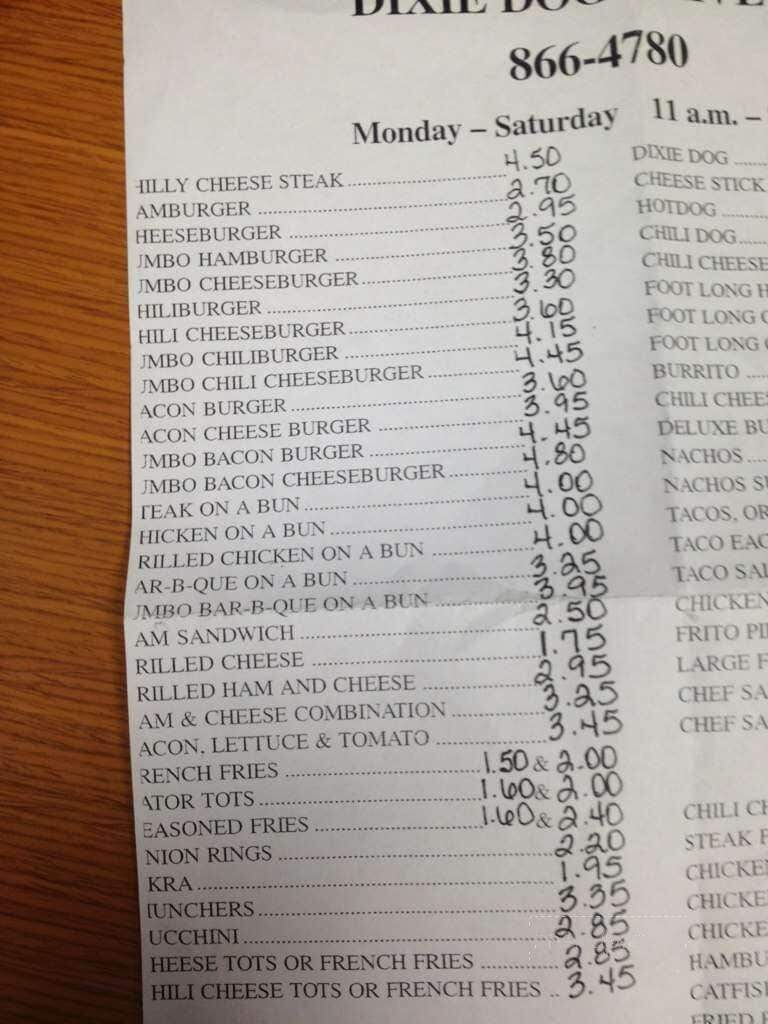 DIXIE DOG
866-4780
Monday – Saturday 11 a.m. –
HILLY CHEESE STEAK 4.50
AMBURGER 2.70
HEESEBURGER 2.95
UMBO HAMBURGER 3.50
UMBO CHEESEBURGER 3.80
HILIBURGER 3.30
HILI CHEESEBURGER 3.60
UMBO CHILIBURGER 4.15
UMBO CHILI CHEESEBURGER 4.45
ACON BURGER 3.60
ACON CHEESE BURGER 3.95
UMBO BACON BURGER 4.45
UMBO BACON CHEESEBURGER 4.80
TEAK ON A BUN 4.00
HICKEN ON A BUN 4.00
RILLED CHICKEN ON A BUN 4.00
AR-B-QUE ON A BUN 3.25
UMBO BAR-B-QUE ON A BUN 3.95
AM SANDWICH 2.50
RILLED CHEESE 1.75
RILLED HAM AND CHEESE 2.95
AM & CHEESE COMBINATION 3.25
ACON, LETTUCE & TOMATO 3.45
RENCH FRIES 1.50 & 2.00
ATOR TOTS 1.60 & 2.00
EASONED FRIES 1.60 & 2.40
NION RINGS 2.20
KRA 1.95
UNCHERS 3.35
UCCHINI 2.85
HEESE TOTS OR FRENCH FRIES 2.85
HILI CHEESE TOTS OR FRENCH FRIES 3.45
DIXIE DOG
CHEESE STICK
HOTDOG
CHILI DOG
CHILI CHEESE
FOOT LONG H
FOOT LONG C
FOOT LONG
BURRITO
CHILI CHEES
DELUXE BU
NACHOS
NACHOS S
TACOS, OR
TACO EAC
TACO SAL
CHICKEN
FRITO PI
LARGE F
CHEF SA
CHEF SA
CHILI CH
STEAK F
CHICKEN
CHICKE
CHICKE
HAMBU
CATFIS
FRIED F